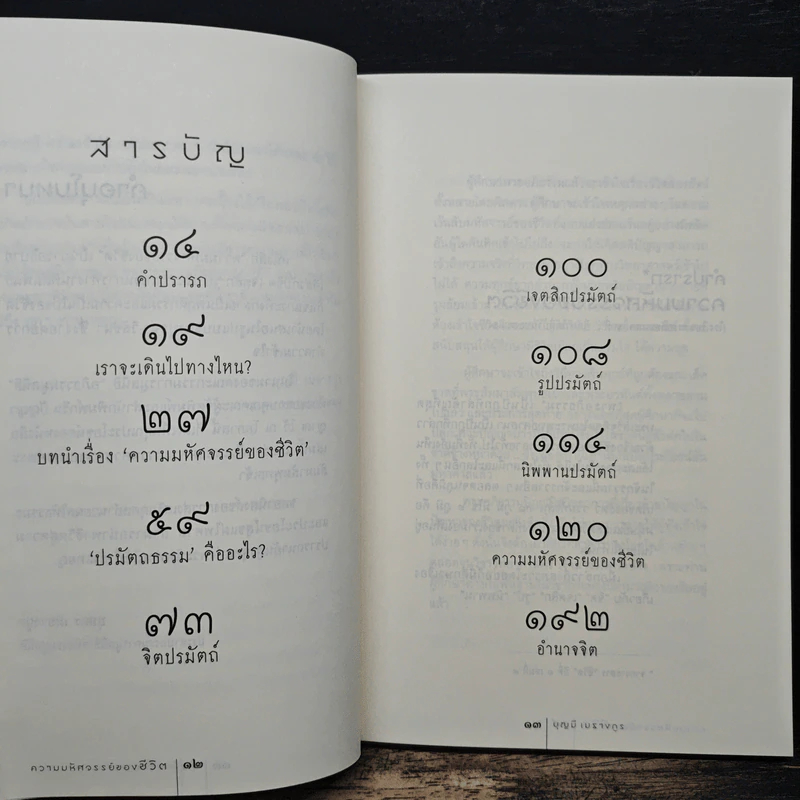 สารบัญ
๑๔
คำปรารภ
๑๙
เราจะเดินไปทางไหน?
๒๗
บทนำเรื่อง ‘ความมหัศจรรย์ของชีวิต’
๕๙
‘ปรมัตถธรรม’ คืออะไร?
๗๓
จิตปรมัตถ์
ความมหัศจรรย์ของชีวิต ๑๒
๑๐๐
เจตสิกปรมัตถ์
๑๐๘
รูปปรมัตถ์
๑๑๔
นิพพานปรมัตถ์
๑๒๐
ความมหัศจรรย์ของชีวิต
๑๙๒
อำนาจจิต
๑๓ บุญมี เมธางกูร